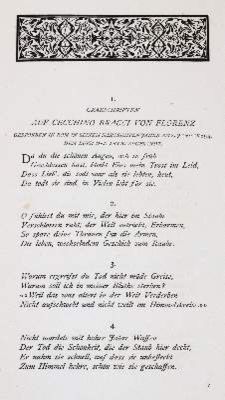 1.
GRABSCHRIFTEN
AUF CECCHINO BRACCI VON FLORENZ
GESTORBEN IN ROM IN SEINEM
Da du die schönen Augen, ach so früh
Geschlossen hast, bleibt Eins mein Trost im Leid,
Dass Lieb', die todt war als sie lebten, heut,
Da todt sie sind, in Vielen lebt für sie.
2.
O fühlest du mit mir, der hier im Staube
Verschlossen ruht, der Welt entrückt, Erbarmen,
So spare deine Thränen für die Armen,
Die leben, wechselndem Geschick zum Raube.
3.
Warum ergreifst du Tod nicht müde Greise,
Warum soll ich in meiner Blüthe sterben?
»Weil das was altert in der Welt Verderben
Nicht aufschwebt und nicht weilt im Himmelskreise.«
4.
Nicht wurdest mit hoher Jahre Waffen
Der Tod die Schönheit, die der Staub hier deckt,
Er nahm sie schnell, auf dass sie unbefleckt
Zum Himmel kehre, schön wie sie geschaffen.